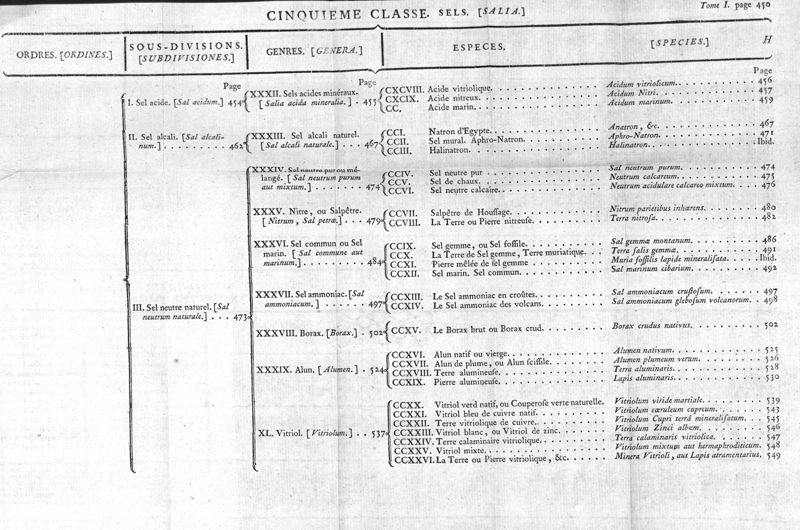 CINQUIEME CLASSE. SELS. [SALIA.]
Tome I. page 450
ORDRES. [ORDINES.]
SOUS-DIVISIONS.
[SUBDIVISIONES.]
GENRES. [GENERA.]
ESPECES.
[SPECIES.]
H
Page
I. Sel acide. [Sal acidum.] 454
Page
XXXII. Sels acides minéraux.
[Salia acida mineralia.] . 455
Page
CXCVIII. Acide vitriolique. Acidum vitriolicum. 456
CXCIX. Acide nitreux. Acidum Nitri. 457
CC. Acide marin. Acidum marinum. 459
II. Sel alcali. [Sal alcali-
num.] 462
XXXIII. Sel alcali naturel.
[Sal alcali naturale.] 467
CCI. Natron d'Egypte. Anatron, &c. 467
CCII. Sel mural. Aphro-Natron. Aphro-Natron. 471
CCIII. Halinatron. Halinatron. Ibid.
III. Sel neutre naturel. [Sal
neutrum naturale.] 473
XXXIV. Sel neutre pur ou mê-
langé. [Sal neutrum purum
aut mixtum.] 474
CCIV. Sel neutre pur Sal neutrum purum. 474
CCV. Sel de chaux. Neutrum calcareum. 475
CCVI. Sel neutre calcaire. Neutrum acidulare calcareo mixtum. 476
XXXV. Nitre, ou Salpêtre.
[Nitrum, Sal petræ.] 479
CCVII. Salpêtre de Houssage. Nitrum parietibus inhærens. 480
CCVIII. La Terre ou Pierre nitreuse. Terra nitrosa. 482
XXXVI. Sel commun ou Sel
marin. [Sal commune aut
marinum.] 484
CCIX. Sel gemme, ou Sel fossile. Sal gemmæ montanum. 486
CCX. La Terre de Sel gemme, Terre muriatique. Terra salis gemmæ. 491
CCXI. Pierre mêlée de sel gemme Muria fossilis lapide mineralisata. Ibid.
CCXII. Sel marin. Sel commun. Sal marinum cibarium. 492
XXXVII. Sel ammoniac. [Sal
ammoniacum.] 497
CCXIII. Le Sel ammoniac en croûtes. Sal ammoniacum crustosum. 497
CCXIV. Le Sel ammoniac des volcans. Sal ammoniacum glebosum volcanorum. 498
XXXVIII. Borax. [Borax.] 502
CCXV. Le Borax brut ou Borax crud. Borax crudus nativus. 502
XXXIX. Alun. [Alumen.] 524
CCXVI. Alun natif ou vierge. Alumen nativum. 525
CCXVII. Alun de plume, ou Alun scissile. Alumen plumeum verum. 526
CCXVIII. Terre alumineuse. Terra aluminaris. 528
CCXIX. Pierre alumineuse. Lapis aluminaris. 530
XL. Vitriol. [Vitriolum.] 537
CCXX. Vitriol verd natif, ou Couperose verte naturelle. Vitriolum viride martiale. 539
CCXXI. Vitriol bleu de cuivre natif. Vitriolum cœruleum cupreum. 543
CCXXII. Terre vitriolique de cuivre. Vitriolum Cupri terrâ mineralisatum. 545
CCXXIII. Vitriol blanc, ou Vitriol de zinc. Vitriolum Zinci album. 546
CCXXIV. Terre calaminaire vitriolique. Terra calaminaris vitriolica. 547
CCXXV. Vitriol mixte. Vitriolum mixtum aut hermaphroditicum. 548
CCXXVI. La Terre ou Pierre vitriolique, &c. Minera Vitrioli, aut Lapis atramentarius. 549